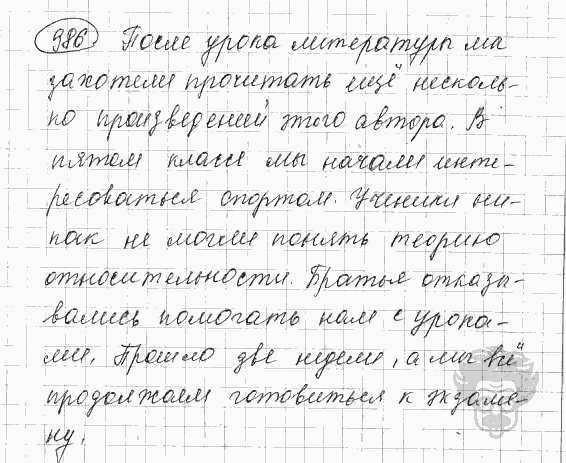 986 После урока литературы мы
захотели прочитать ещё несколь-
ко произведений этого автора. В
пятом классе мы начали инте-
ресоваться спортом. Ученики ни-
как не могли понять теорию
относительности. Братья отказы-
вались помогать нам с урока-
ми. Прошло две недели, а мы всё
продолжаем готовиться к экзаме-
ну.